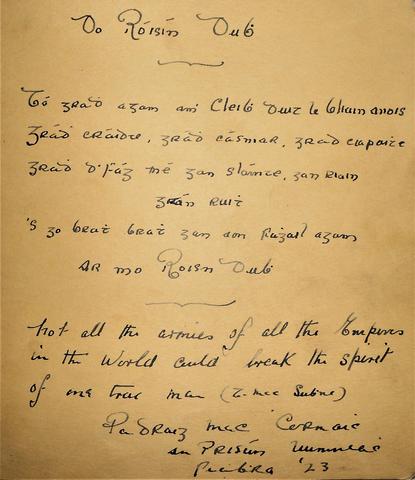 Do Róisín Dub
Tá grád agam am' Cleib Duit le bliain anois
Grád cráidte, grád cásmar, grád ciapaite
Grád d'fág mé gan sláinte, gan rian
gan ruit
's go brat brat gan aon fágail agam
ar mo Roisin Dub
Not all the armies of all the Empires
in the World could break the spirit
of one true man (T. Mac Suibne)
Padraig Mac Cormaic
an Prisún
'23